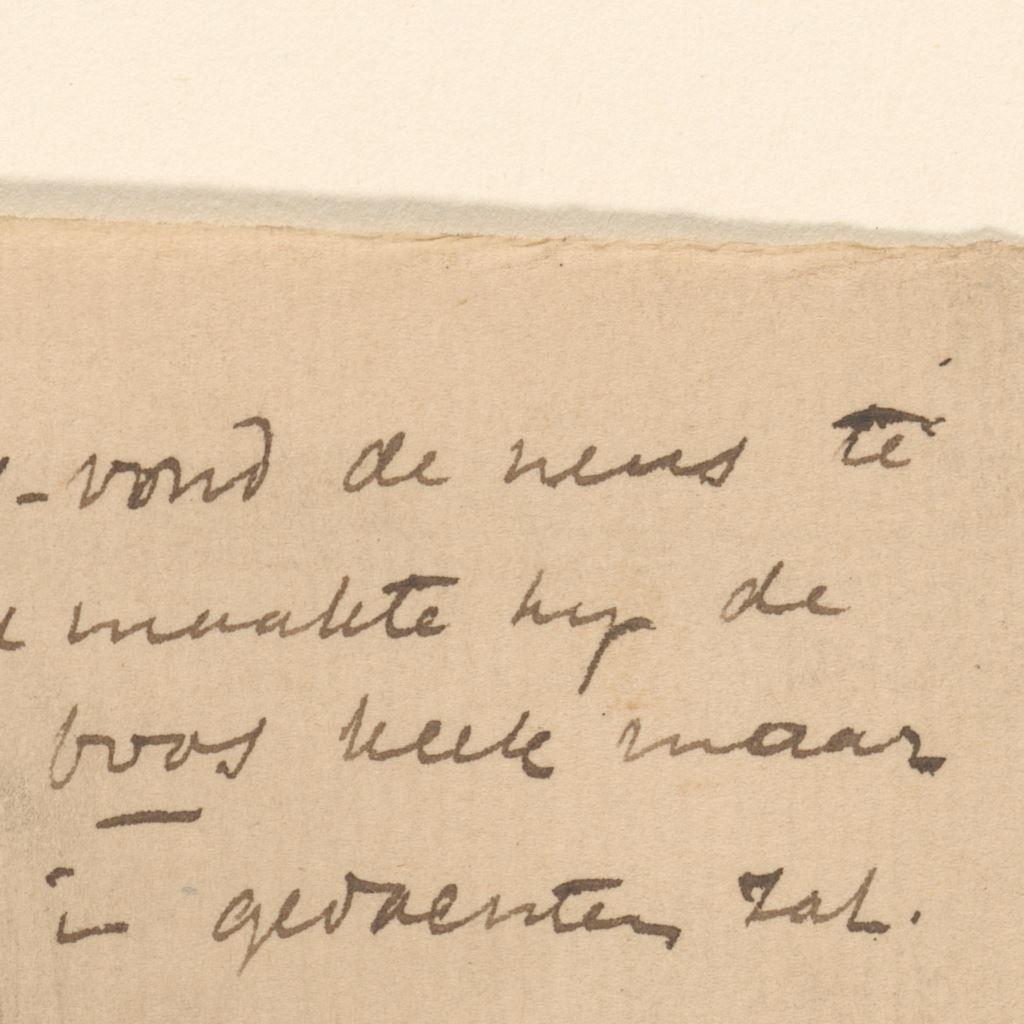 - vond de neus te
maakte hij de
boos keek maar
in gedachten zat.